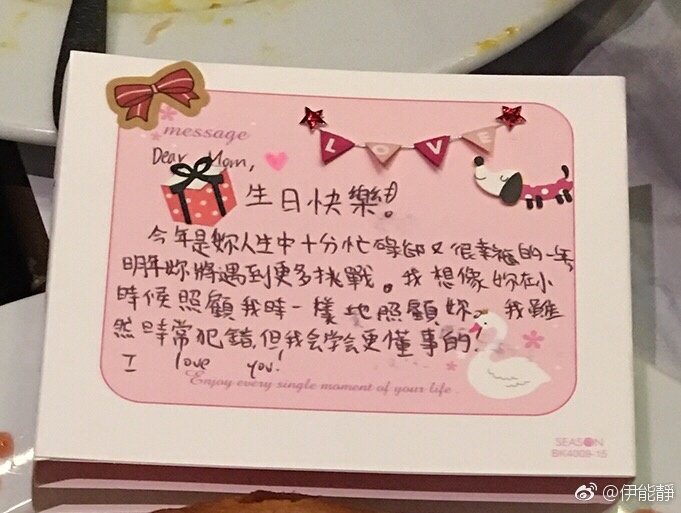 message
Dear Mom,
LOVE
生日快樂!
今年是妳人生中十分忙碌卻又很幸福的一年
明年妳將遇到更多挑戰。我想像妳在小
時候照顧我時一樣地照顧妳。我雖
然時常犯錯,但我会学会更懂事的!
I love you!
Enjoy every single moment of your life
SEASON
BK4009-15
@伊能靜